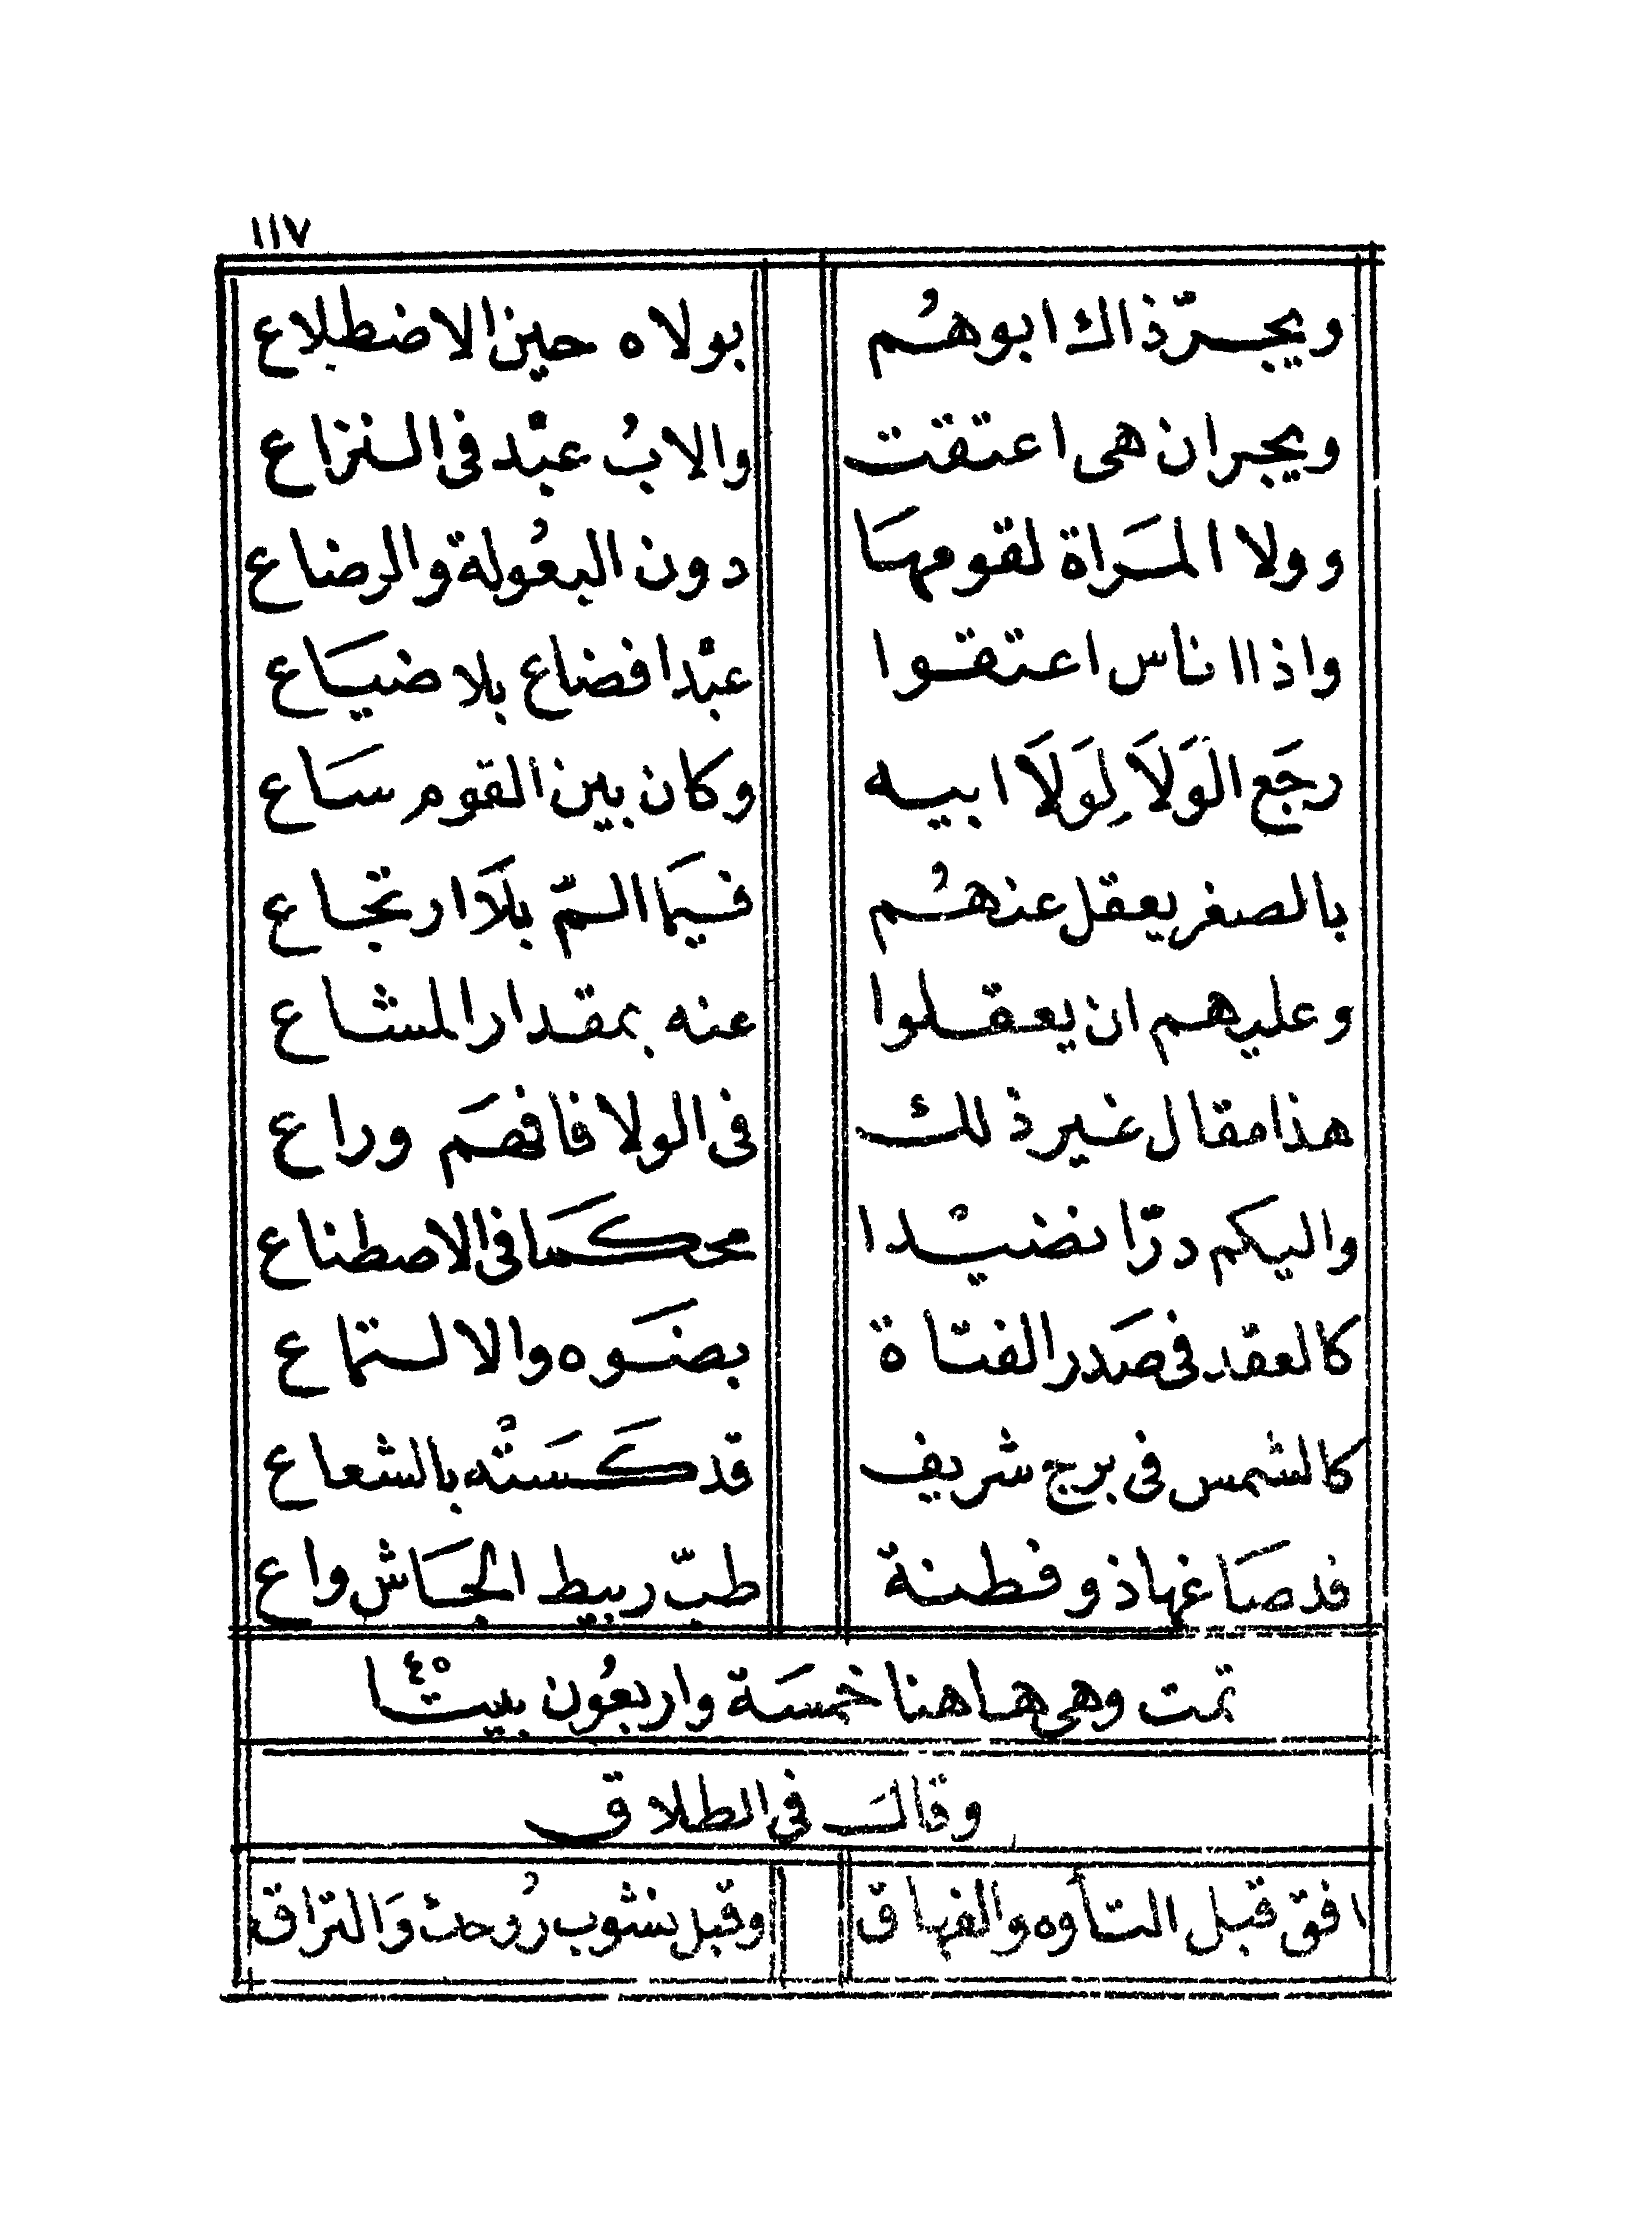 ١١٧
ويجرّ ذاك ابوهُم بولاه حين الاضطلاع
ويجر ان هى اعتقت والابُ عبْد فى النزاع
وولا المَراة لقومهَا دون البعُولة والرضاع
واذا اناس اعتقوا عبْدا فضاع بلا ضيَاع
رجَع الوَلَا لِوَلَا ابيه وكان بين القوم سَاع
بالصغر يعقل عنهُم فيمَا المّ بلَا ارتجاع
وعليهم ان يعقلوا عنه بمقدار المشاع
هذا مقال غير ذلك فى الولا فافهَم وراع
واليكم درّا نضيْدا محكمَا فى الاصطناع
كالعقد فى صَدر الفتاة بضَوه والالتماع
كالشمس فى برج شريف قد كَسَتْه بالشعاع
قد صَاغها ذو فطنة طبّ ربيط الجَاش واع
تمت وهى هاهنا خمسَة واربعُون بيتا ٤٥
وقالَ فى الطلاق
افق قبل التأوه والفهاق وقبل نشوب رُوحك وَالتراق